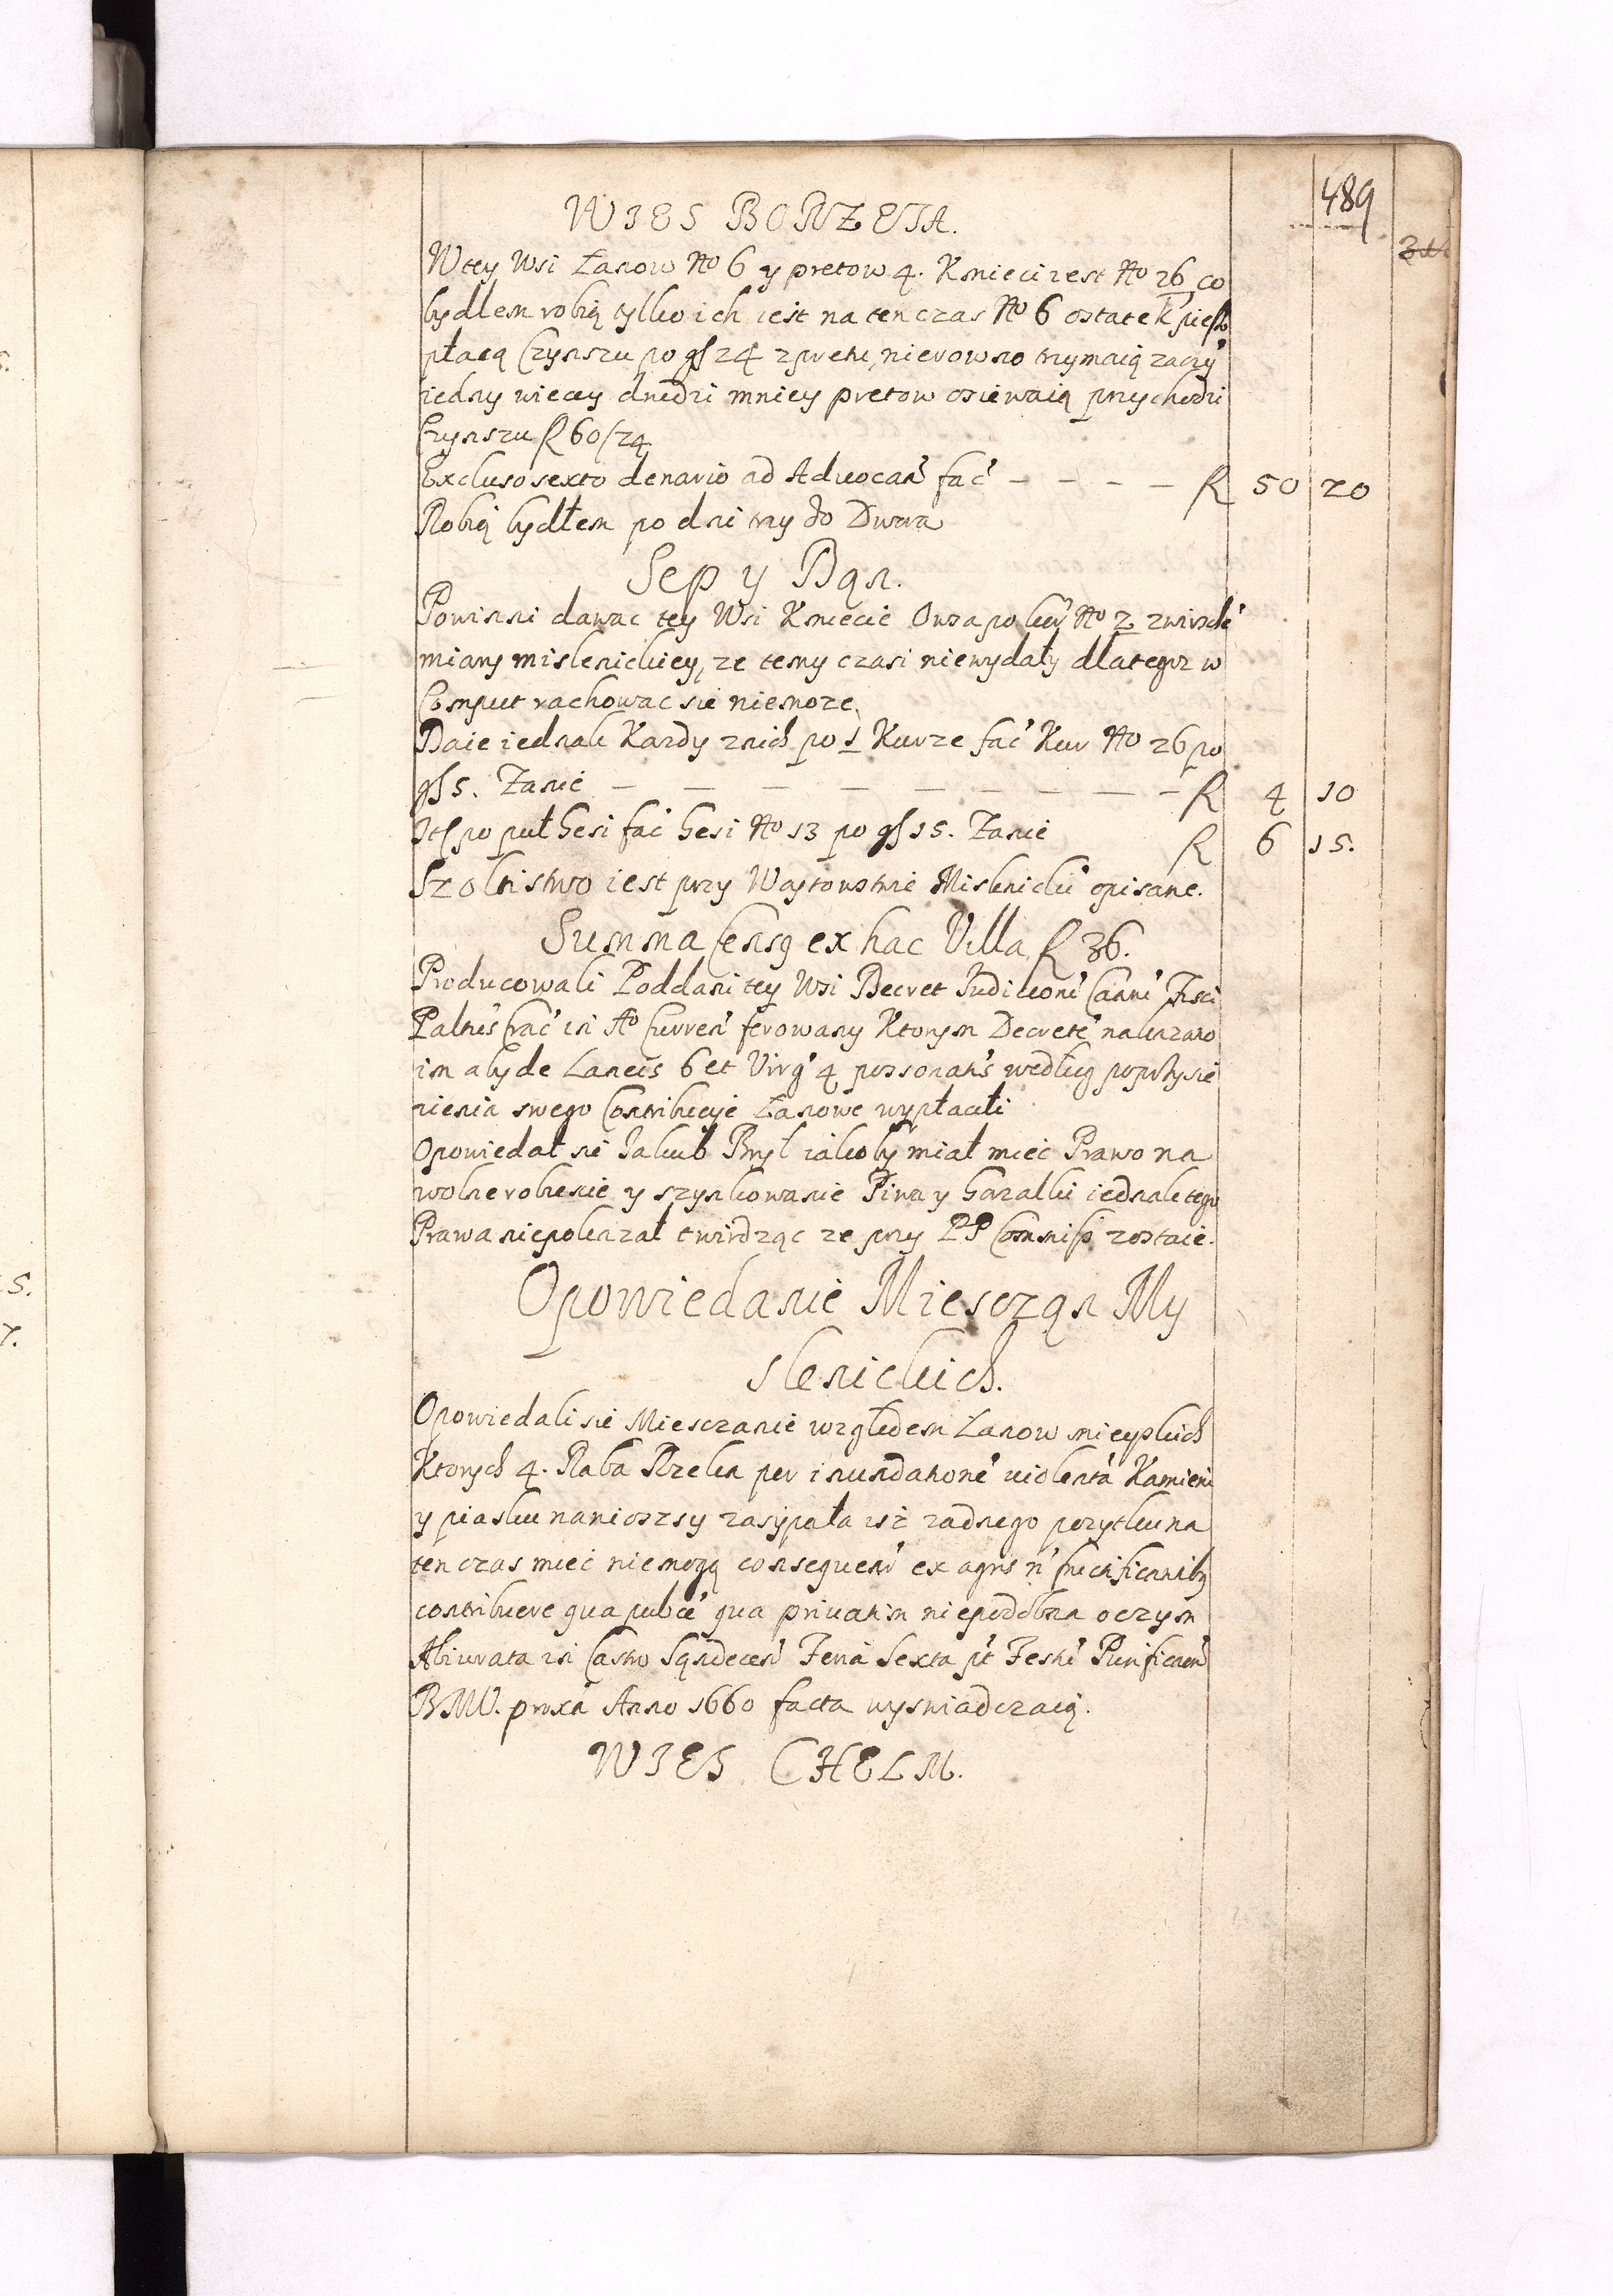 489
WIES BORZETA.
W tey Wsi Łanow No 6 y pretow 4. Kmieci iest No 26 co
bydłem robią tylko ich iest na ten czas No 6 ostatek pieszo
płacą Czynszu po gſ 24 z preta, nierowno trzymaią zaczy̓
iedny wiecey drudzi mniey pretow osiewaią przychodzi
Czynszu R 60/24
Excluso sexto denario ad Aduocań fać — — — — R 50 20
Robią bydłem po dni trzy do Dwora
Sep y Dań.
Powinni dawac tey Wsi Kmiecie Owsa po kor̓ No 2 z wirzche̓
miary mislenickiey, ze temy czasi niewydały dlategoz w
Comput rachowac sie niemoze.
Daie iednak Kazdy z nich po 1 Kurze fać Kur No 26 po
gſ 5. Zanie — — — — — — — — R 4 10
It̓ po puł Gesi fać Gesi No 13 po gſ 15. Zanie R 6 15.
Szoltistwo iest przy Waytowstwie Mislenickī opisane.
Summa Censg ex hac Villa R 36.
Producowali Poddani tey Wsi Decret Fisci
in Ao Curreń ferowany Ktorym Decrete̓ nakazano
im aby de Laneis 6 et Virg̓ 4 według
nienia swego Contribucyie Lanowe wypłacili
Opowiedał sie Jakub Bryl iakoby miał miec Prawo na
wolne robienie y szynkowanie Piwa y Gorzalki iednak tego
Prawa niepokazał twirdząc ze przy PP Commiss̓ zostaie.
Opowiedanie Miesczan My
slenickich.
Opowiedali sie Miesczanie wzgledem Lanow mieyskich
Ktorych 4. Raba Rzeka per inundatione̓ violenta̓ Kamieni
y piasku naniozszy zasypała isz zadnego pozytku na
ten czas miec niemogą consequen̓ ex agris n̓
contribuere qua public̓ qua privatim niepodobna o czym
Abiurata in Castro Sądecen̓ Feria Sexta p̓t Festū Purificaon̓
BMV. proxa̓ Anno 1660 facta wyswiadczaią.
WIES CHELM.